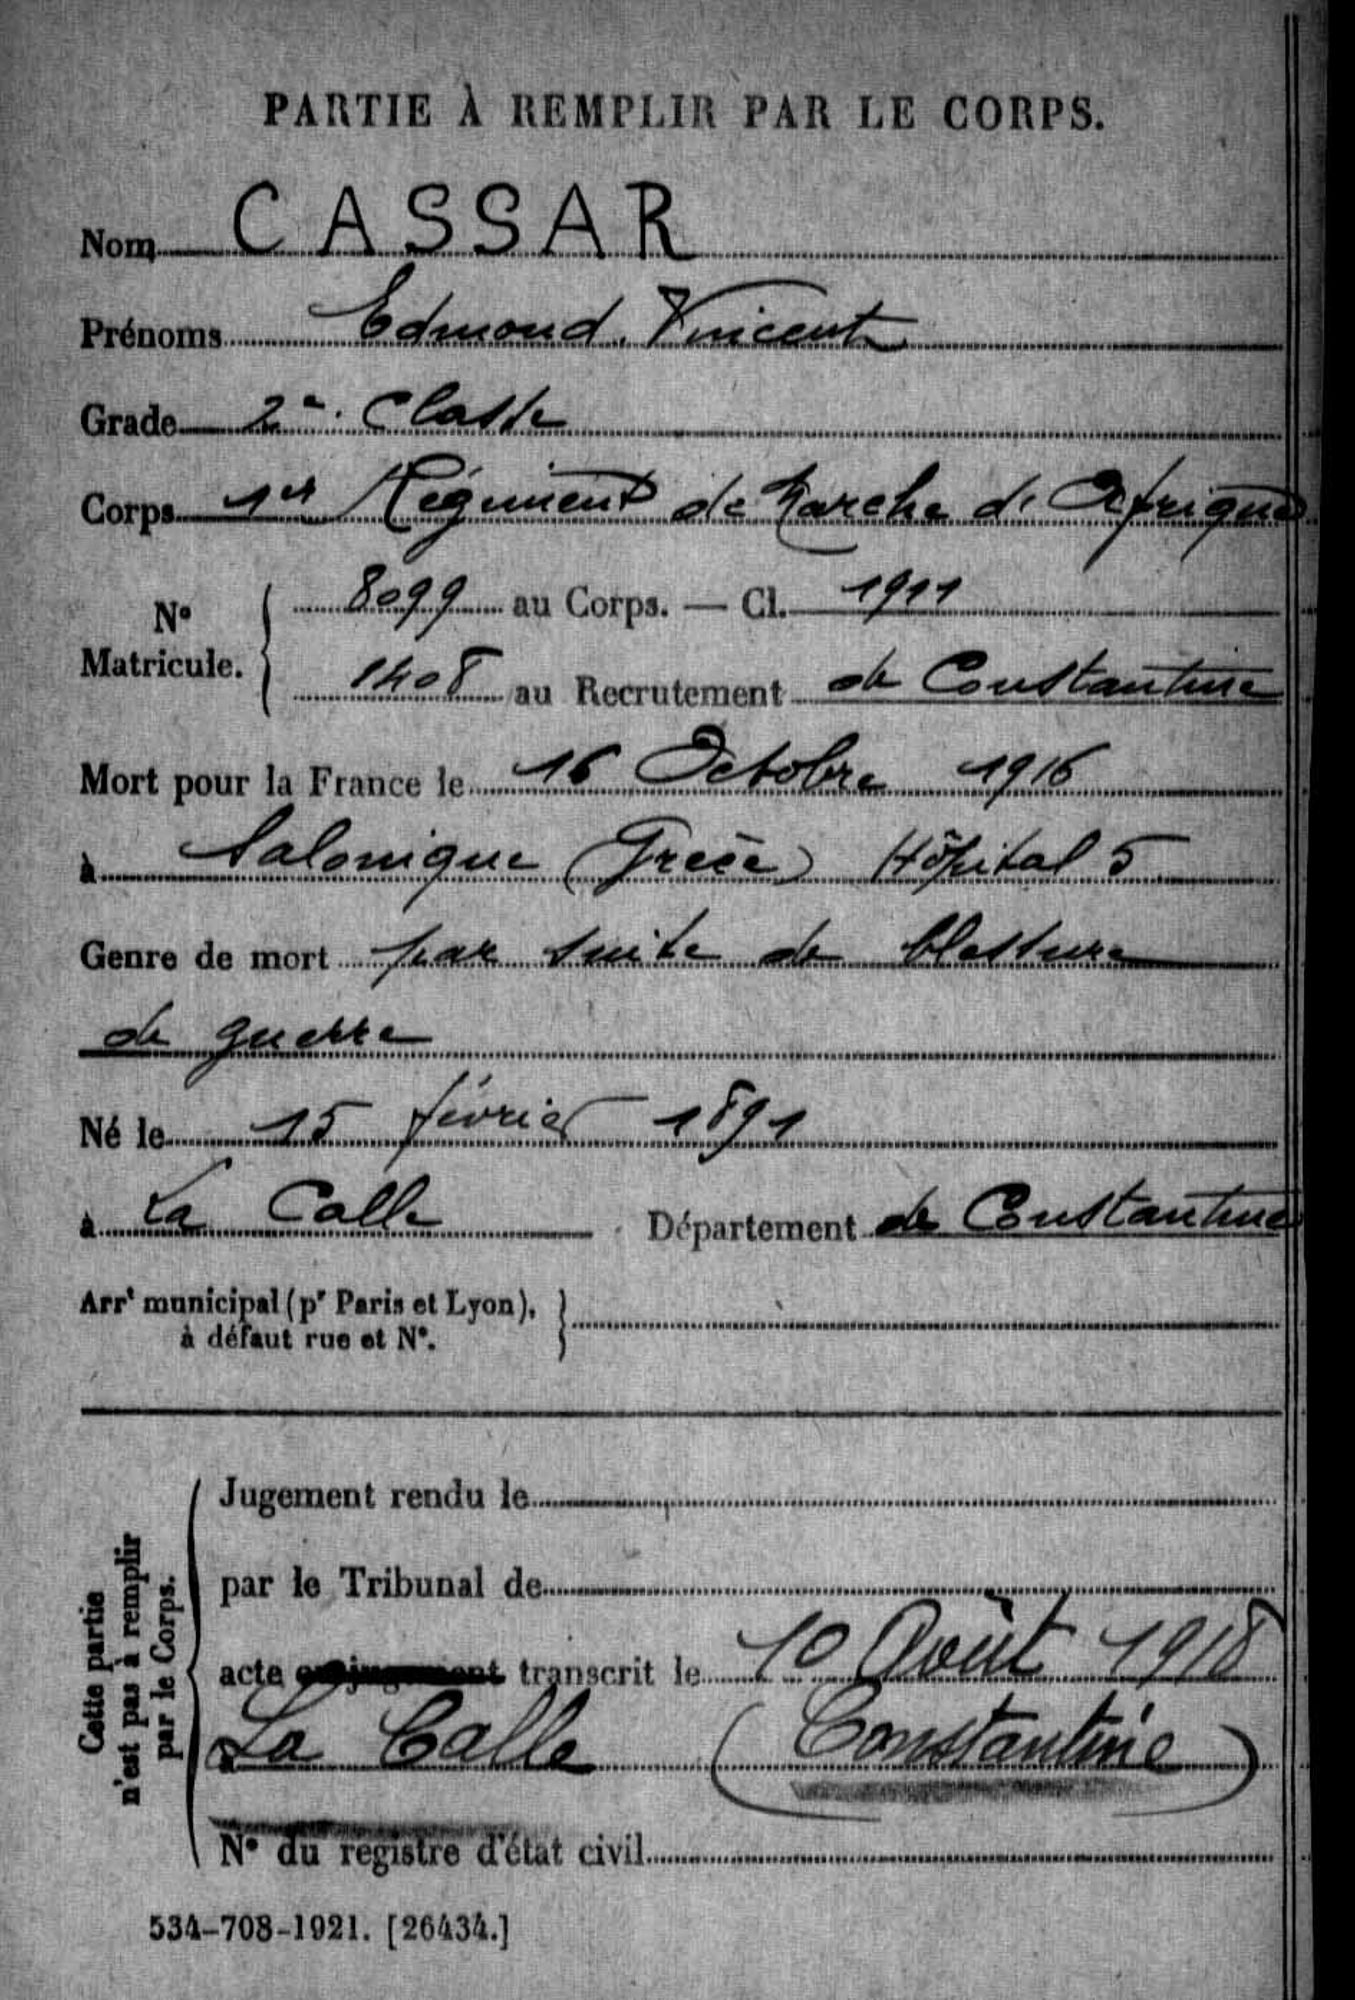 PARTIE À REMPLIR PAR LE CORPS.
Nom CASSAR
Prénoms Edmond, Vincent
Grade 2e Classe
Corps 1er Régiment de Marche d'Afrique
No Matricule. 8099 au Corps. — Cl. 1911
1408 au Recrutement de Constantine
Mort pour la France le 16 Octobre 1916
à Salonique (Grèce) Hôpital 5
Genre de mort par suite de blessure
de guerre
Né le 15 février 1891
à La Calle Département de Constantine
Arrt municipal (pr Paris et Lyon),
à défaut rue et No.
Cette partie
n'est pas à remplir
par le Corps.
Jugement rendu le
par le Tribunal de
acte ou jugement transcrit le 10 Août 1918
à La Calle (Constantine)
No du registre d'état civil
534-708-1921. [26434.]